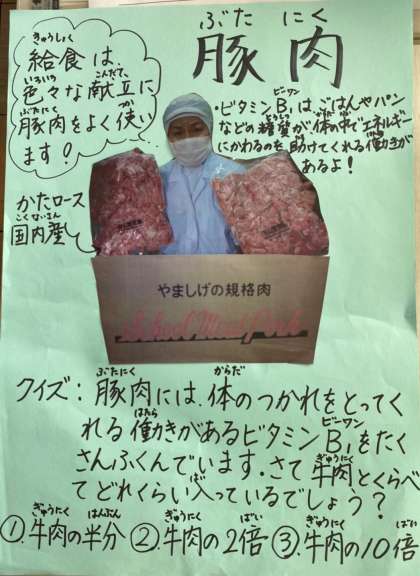 ぶた にく
豚肉
きゅうしょく
給食は、
いろいろ こんだて
色々な献立に
ぶたにく つか
豚肉をよく使い
ます!
ビーワン
・ビタミンB₁は、ごはんやパン
とうしつ からだ
などの糖質が体の中でエネルギー
にかわるのを助けてくれる働きが
あるよ!
かたロース
こくないさん
国内産
やましげの規格肉
School Meal Pork
ぶたにく からだ
クイズ:豚肉には、体のつかれをとってく
はたら ビーワン
れる働きがあるビタミンB₁をたく
ぎゅうにく
さんふくんでいます。さて牛肉とくらべ
はい
てどれくらい入っているでしょう?
ぎゅうにく はんぶん ぎゅうにく ばい ぎゅうにく ばい
①.牛肉の半分 ②.牛肉の2倍 ③.牛肉の10倍